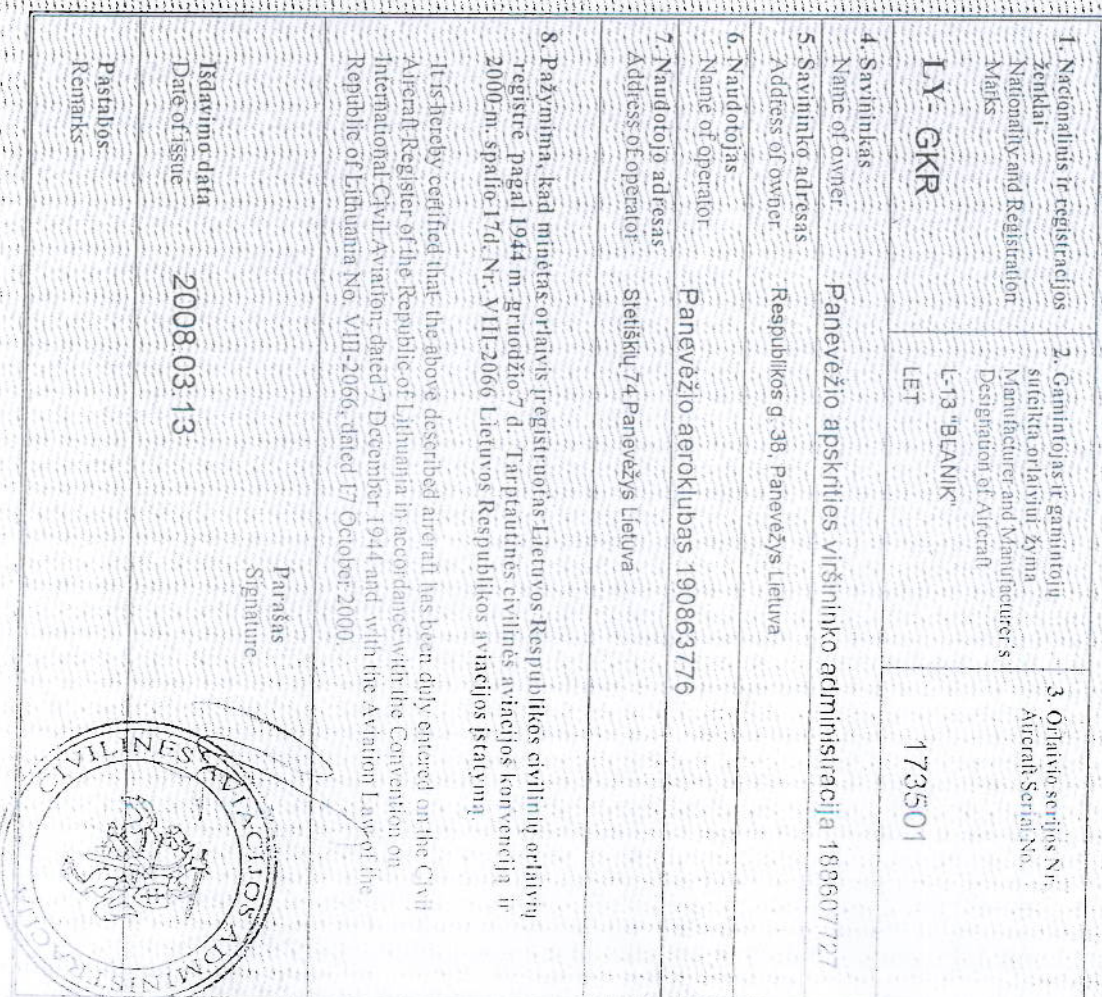 1. Nacionalinis ir registracijos
ženklai
Nationality and Registration
Marks
LY- GKR
2. Gamintojas ir gamintojų
suteikta orlaiviui žyma
Manufacturer and Manufacturer's
Designation of Aircraft
L-13 "BLANIK"
LET
3. Orlaivio serijos Nr.
Aircraft Serial No.
173501
4. Savininkas
Name of owner
Panevėžio apskrities viršininko administracija 188607727
5. Savininko adresas
Address of owner
Respublikos g. 38, Panevėžys Lietuva
6. Naudotojas
Name of operator
Panevėžio aeroklubas 190863776
7. Naudotojo adresas
Address of operator
Stetiškių 74 Panevėžys Lietuva
8. Pažymima, kad minėtas orlaivis įregistruotas Lietuvos Respublikos civilinių orlaivių
registre pagal 1944 m. gruodžio 7 d. Tarptautinės civilinės aviacijos konvenciją ir
2000 m. spalio 17d. Nr. VIII-2066 Lietuvos Respublikos aviacijos įstatymą.
It is hereby certified that the above described aircraft has been duly entered on the Civil
Aircraft Register of the Republic of Lithuania in accordance with the Convention on
International Civil Aviation, dated 7 December 1944 and with the Aviation Law of the
Republic of Lithuania No. VIII-2066, dated 17 October 2000
Išdavimo data
Date of issue
2008.03.13
Parašas
Signature
Pastabos
Remarks
CIVILINĖS AVIACIJOS ADMINISTRACIJA